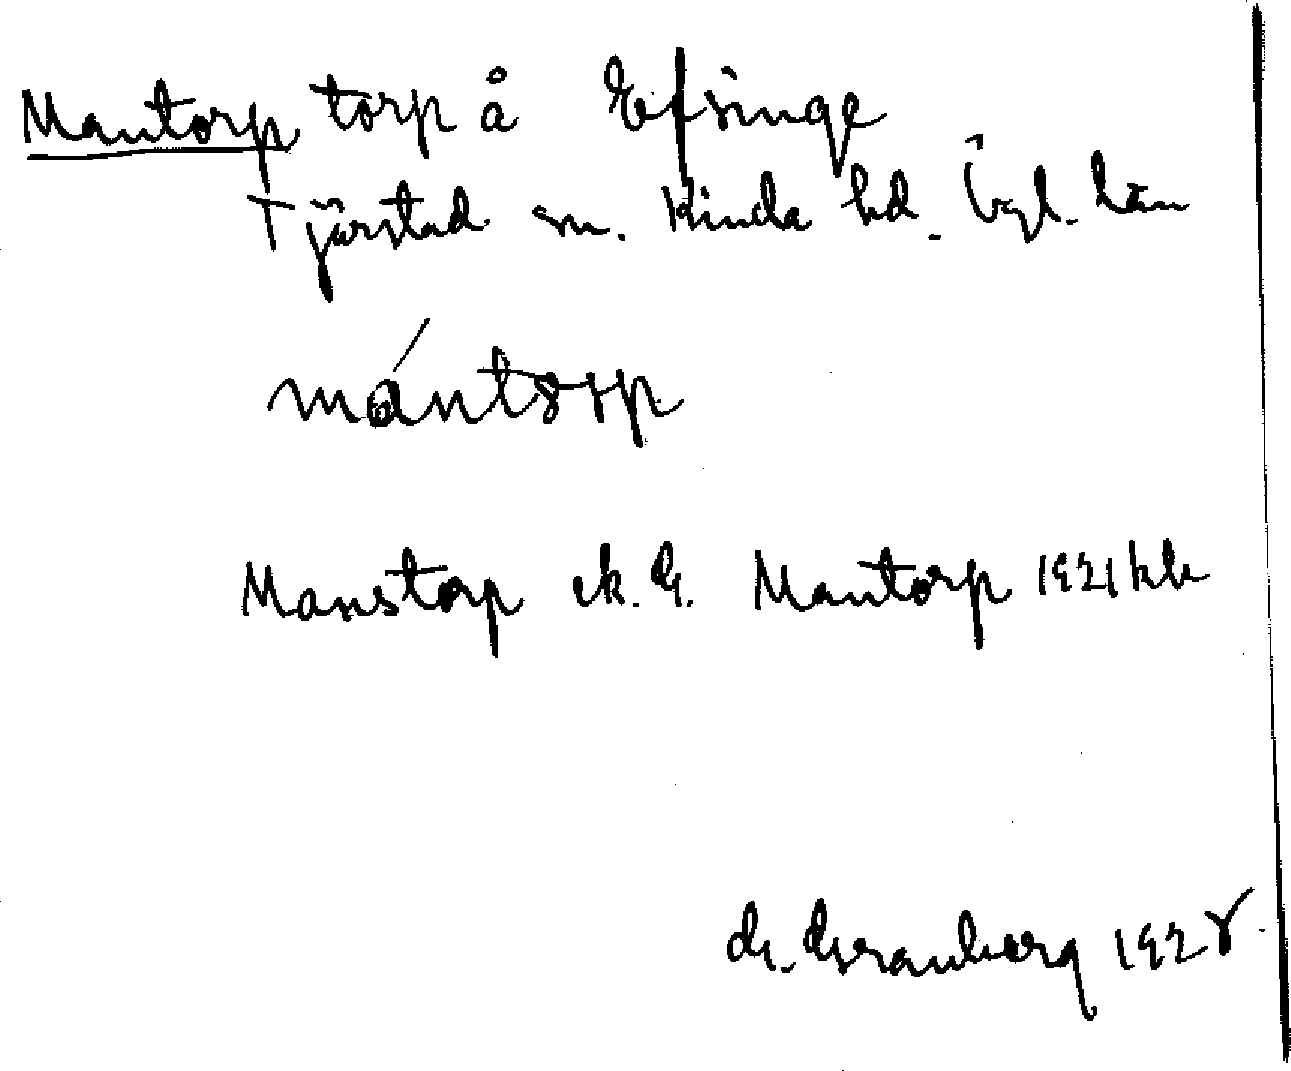 Mantorp torp å Efsinge
Tjärstad sn. Kinda hd. Ögl. län
mántorp
Manstorp ek. G. Mantorp 1921 hk
G. Granberg 1928